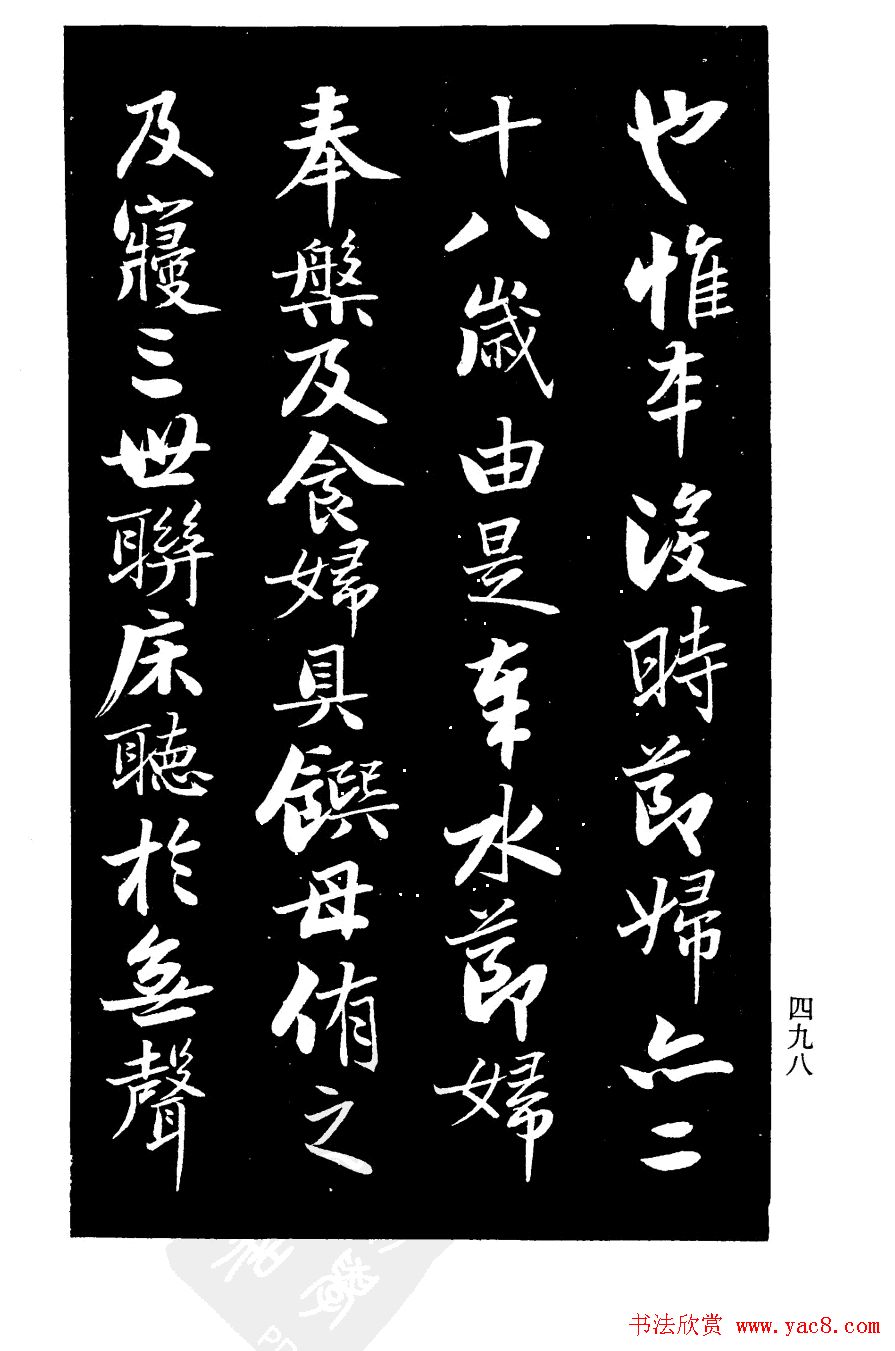 也惟本沒時節婦亦二
十八歲由是奉水節婦
奉槃及食婦具饌母侑之
及寢三世聯床聽於無聲
四九八
书法欣赏 www.yac8.com